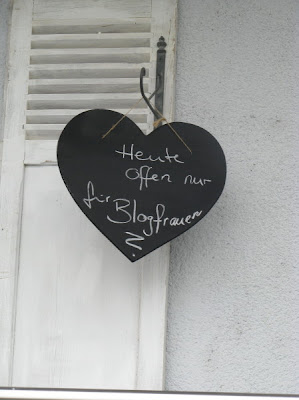 Heute
Offen nur
für
Blogfrauen